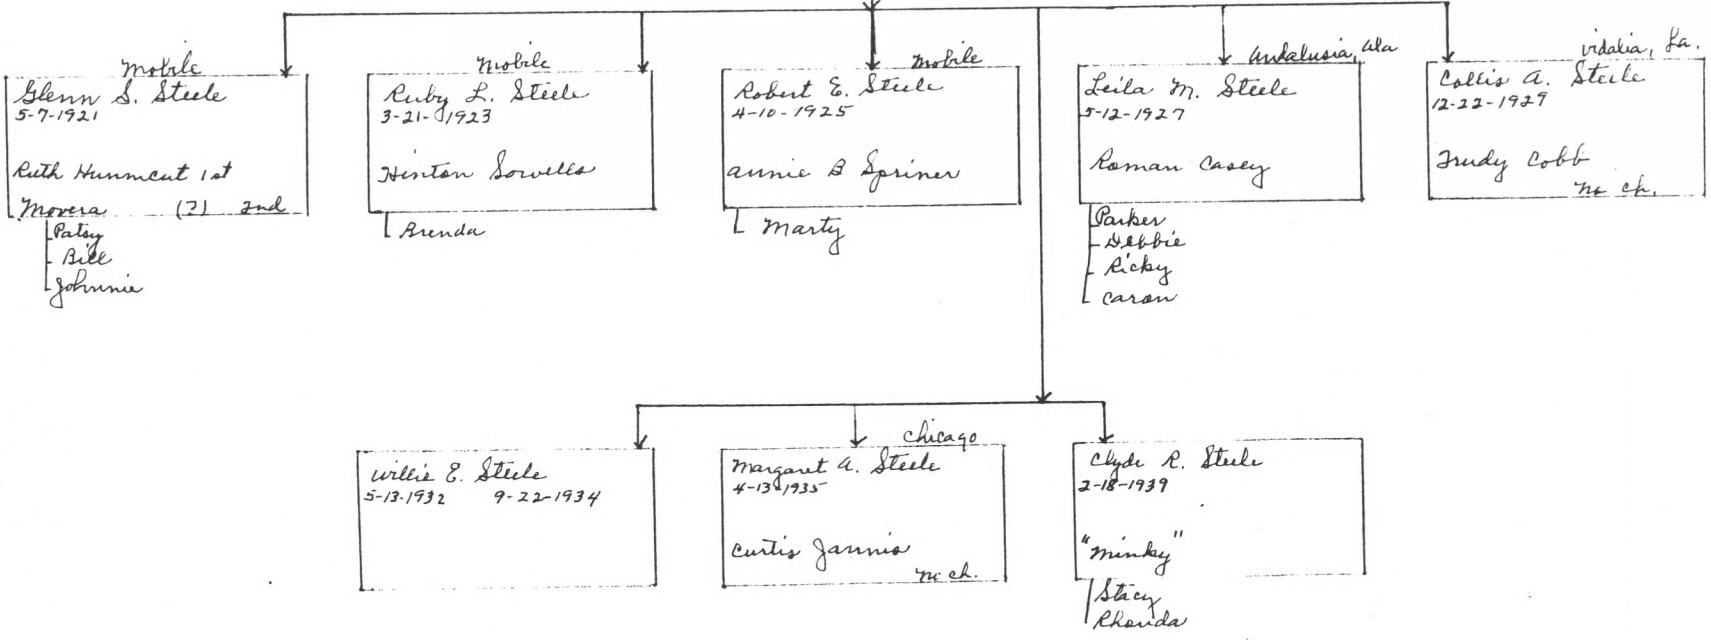 Mobile
Glenn S. Steele
5-7-1921
Ruth Hunnicut 1st
Movera (?) 2nd
Patsy
Bill
Johnnie
Mobile
Ruby L. Steele
3-21-1923
Hinton Sowells
Brenda
Mobile
Robert E. Steele
4-10-1925
Annie B Spriner
Marty
Andalusia, Ala
Leila M. Steele
5-12-1927
Roman Casey
Parker
Debbie
Ricky
Caron
Vidalia, La.
Collis A. Steele
12-22-1929
Trudy Cobb
no ch.
Willie E. Steele
5-13-1932 9-22-1934
Chicago
Margaret A. Steele
4-13-1935
Curtis Jannis
no ch.
Clyde R. Steele
2-18-1939
"Minky"
Stacy
Rhonda